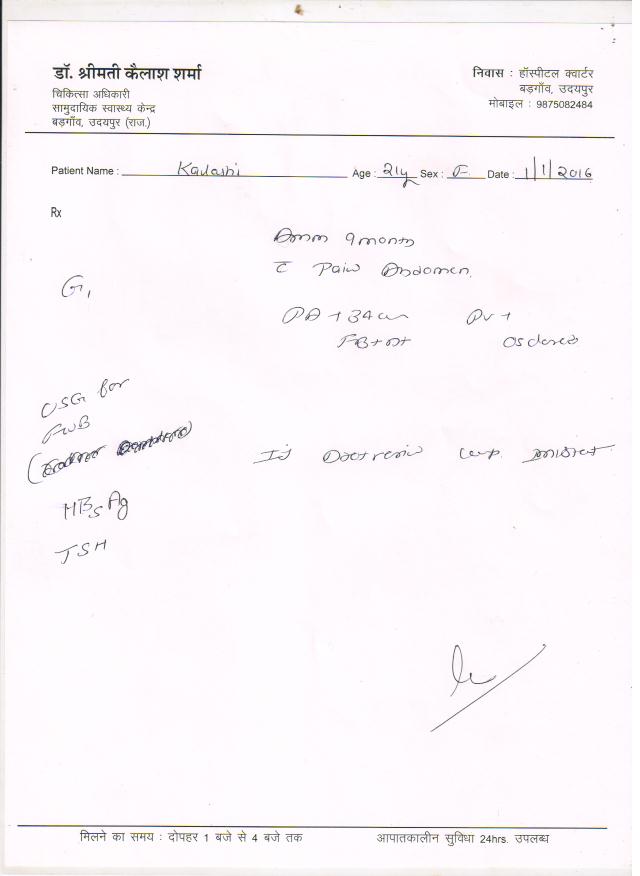 डॉ. श्रीमती कैलाश शर्मा
चिकित्सा अधिकारी
सामुदायिक स्वास्थ्य केन्द्र
बड़गाँव, उदयपुर (राज.)
निवास : हॉस्पीटल क्वार्टर
बड़गाँव, उदयपुर
मोबाइल : 9875082484
Patient Name : Kailashi Age : 21y Sex : F Date : 1/1/2016
Rx
9 months
c Pain Abdomen
G1
PA + 34 cm PV +
Os closed
USG for
FWB
Inj
HBsAg
TSH
मिलने का समय : दोपहर 1 बजे से 4 बजे तक
आपातकालीन सुविधा 24hrs. उपलब्ध